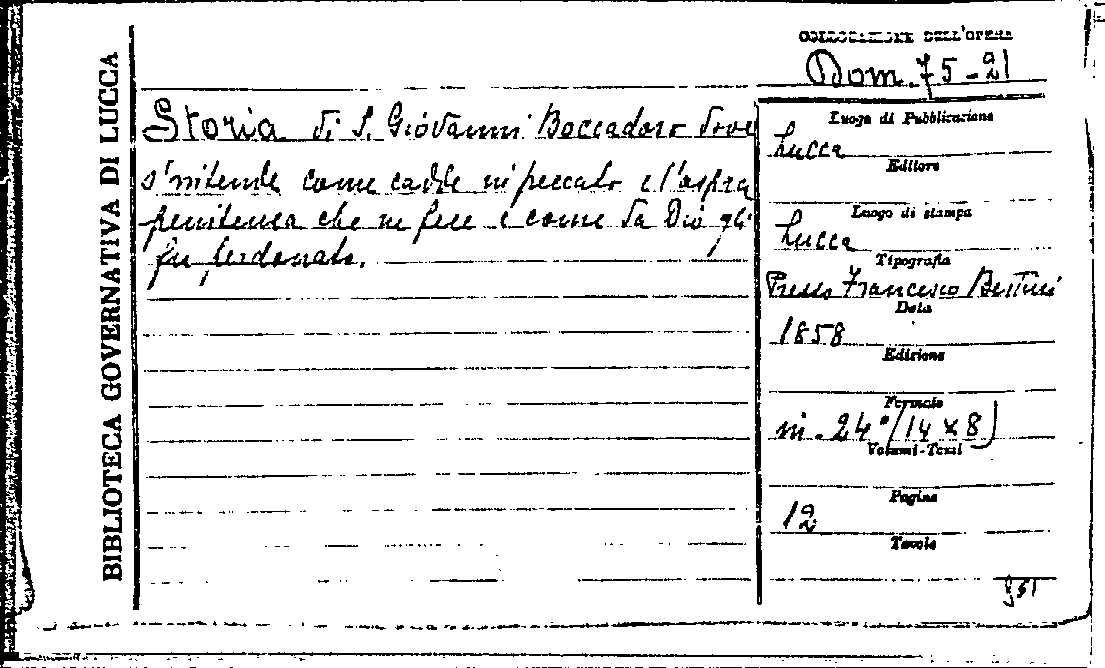 BIBLIOTECA GOVERNATIVA DI LUCCA
COLLOCAZIONE DELL'OPERA
Dom. 75-21
Storia di S. Giovanni Boccadoro dove
s'intende come cadde in peccato e l'aspra
penitenza che ne fece e come da Dio gli
fu perdonato.
Luogo di Pubblicazione
Lucca
Editore
Luogo di stampa
Lucca
Tipografia
Presso Francesco Bertini
Data
1858
Edizione
Formato
in-24°(14x8)
Volumi-Tomi
Pagine
12
Tavole